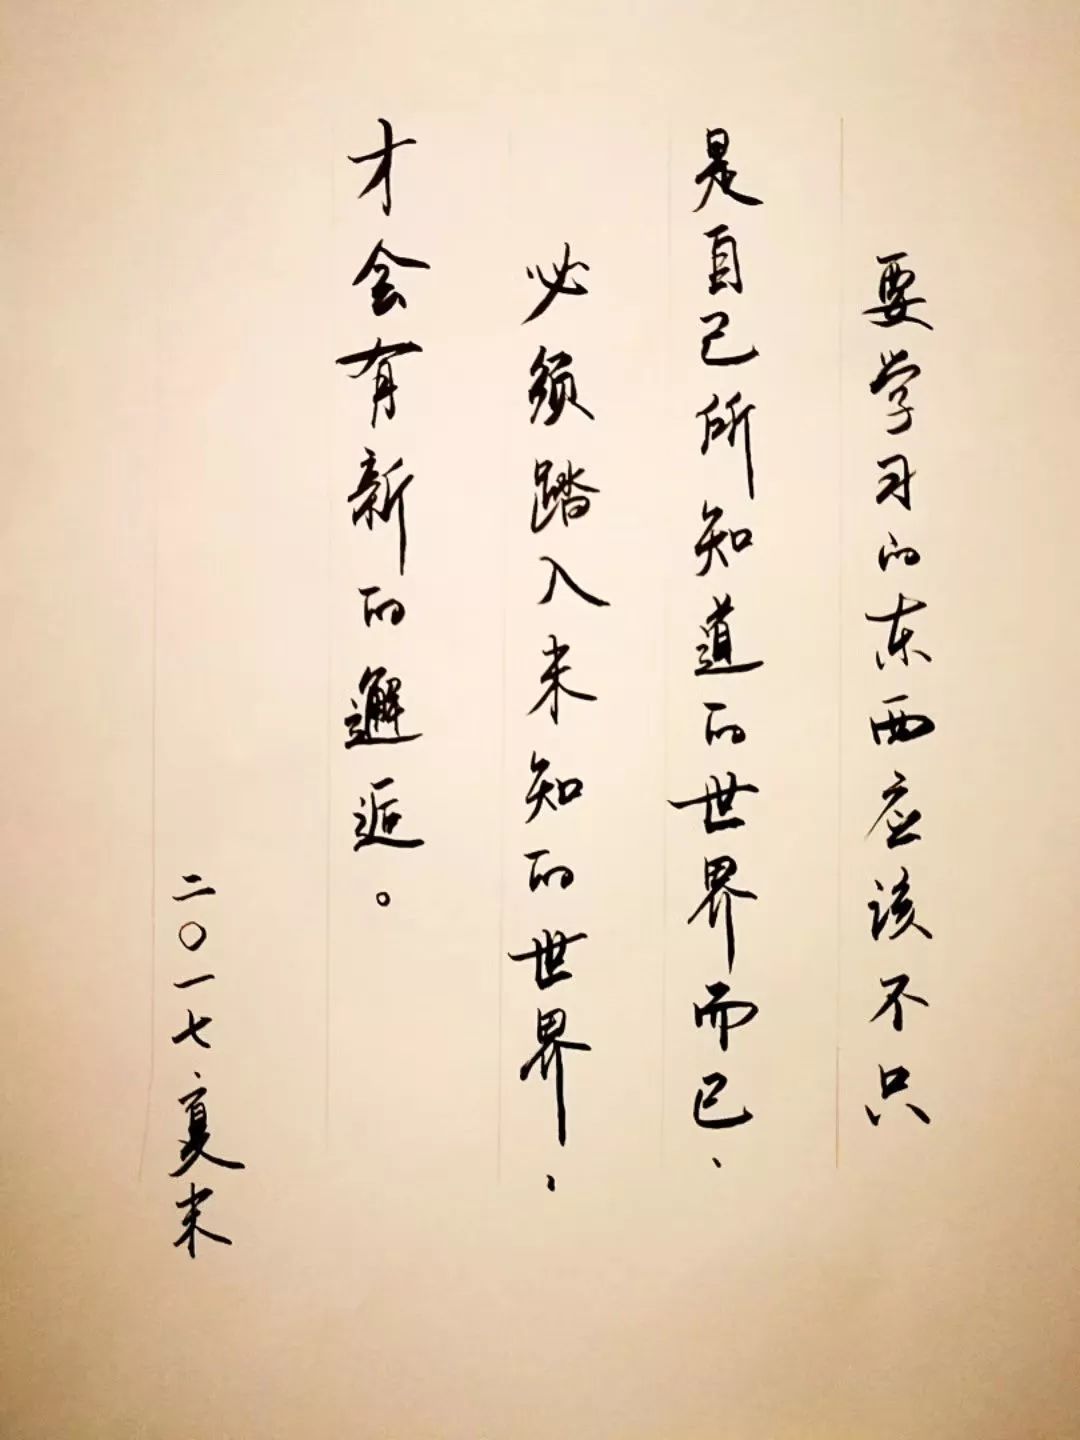 要学习的东西应该不只
是自己所知道的世界而已、
必须踏入未知的世界、
才会有新的邂逅。
二〇一七、夏末